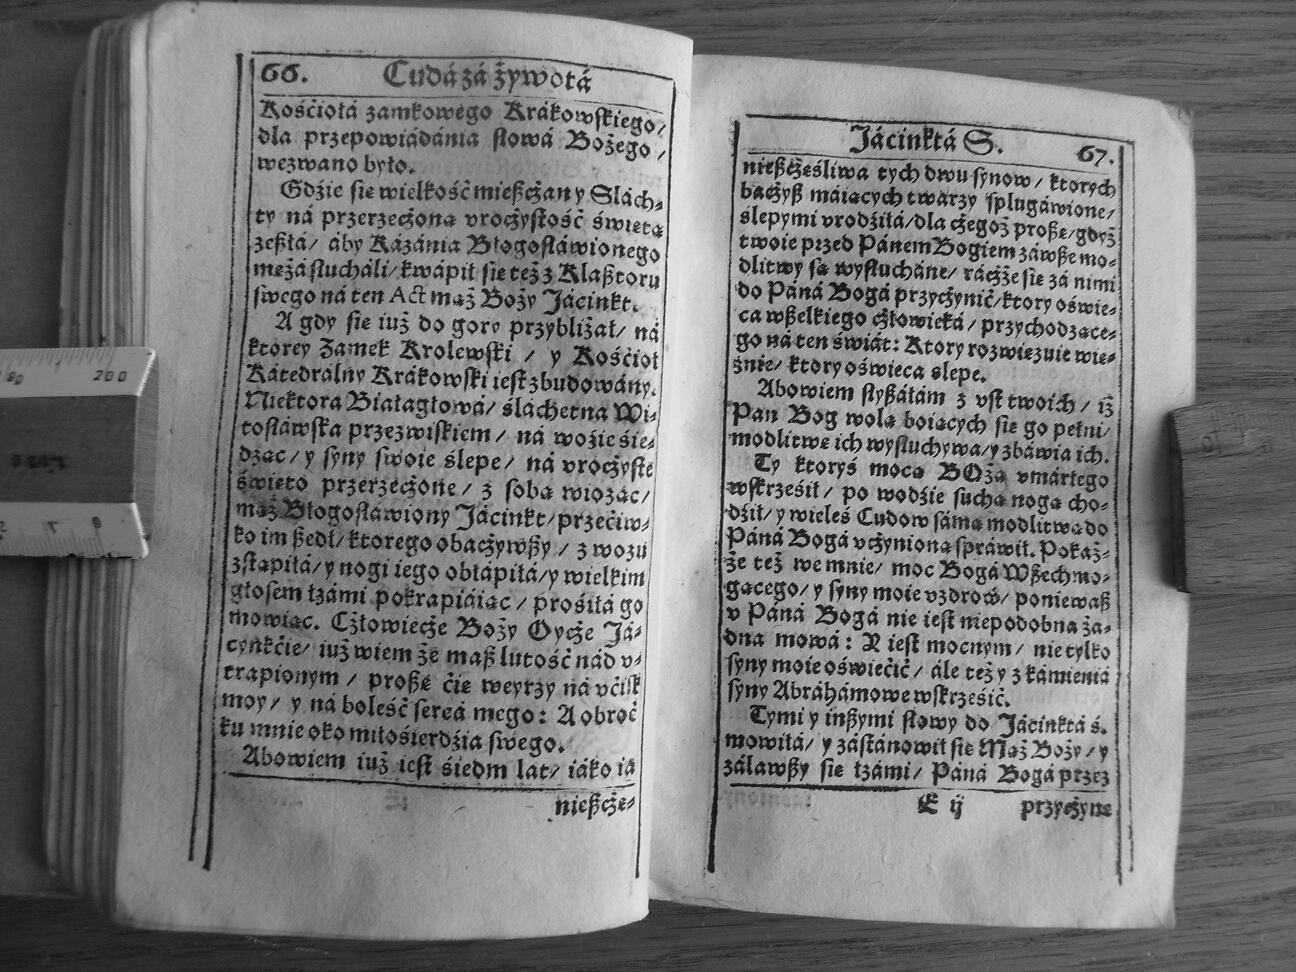 66. Cudá zá żywotá
Kośćiołá zamkowego Krákowskiego/
dla przepowiádánia słowá Bożego/
wezwano było.
Gdźie sie wielkość mießcżan y Slách-
ty ná przerzecżoną vrocżystość świetą
zeßłá/ áby Kázánia Błogosłáwionego
mężá słucháli/ kwápił sie też z Klaßtoru
swego ná ten Act mąż Boży Jácinkt.
A gdy sie iuż do gory przybliżał/ ná
ktorey Zamek Krolewski / y Kośćioł
Kátedrálny Krákowski iest zbudowány.
Niektora Białagłowá/ śláchetna Wi-
tosłáwska przezwiskiem / ná woźie śie-
dząc/ y syny swoie ślepe/ ná vrocżyste
święto przerzecżone/ z sobą wiozác/
mąż Błogosławiony Jácinkt/ przećiw-
ko im ßedł/ ktorego obacżywßy / z wozu
zstąpiłá/ y nogi iego obłápiłá/ y wielkim
głosem łzámi pokrapiáiąc / prośiłá go
mowiąc. Cżłowiecże Boży Oycże Já-
cynkćie/ iuż wiem że maß lutość nád v-
trapionym / proßę ćie weyrzy ná vćisk
moy/ y ná boleść sercá mego: A obroć
ku mnie oko miłośierdźia swego.
Abowiem iuż iest śiedm lat/ iáko ia
nießcże-
Jácinktá S. 67.
nießcżeśliwa tych dwu synow/ ktorych
bacżyß máiących twarzy splugáwione/
ślepymi vrodźiłá/ dla cżegoż proßę/ gdyż
twoie przed Pánem Bogiem záwße mo-
dlitwy są wysłucháne/ rácżże sie zá nimi
do Páná Bogá przycżynić/ ktory oświe-
ca wßelkiego cżłowieká/ przychodzące-
go ná ten świát: Ktory rozwięzuie wię-
źnie/ ktory oświeca ślepe.
Abowiem słyßáłám z vst twoich / iż
Pan Bog wolą boiących sie go pełni/
modlitwe ich wysłuchywa/ y zbáwia ich.
Ty ktoryś mocą BOżą vmárłego
wskrześił/ po wodźie suchą nogą cho-
dźił/ y wieleś Cudow sámą modlitwą do
Páná Bogá vcżynioną spráwił. Pokaż-
że też we mnie/ moc Bogá Wßechmo-
gącego/ y syny moie vzdrow/ poniewaß
v Páná Bogá nie iest niepodobna ża-
dna mowá: Y iest mocnym/ nie tylko
syny moie oświećić/ ále też y z kámieniá
syny Abráhámowe wskrześić.
Tymi y inßymi słowy do Jácinktá ś.
mowiłá/ y zástánowił sie Mąż Boży/ y
zálawßy sie łzámi/ Páná Bogá przez
E ij przycżynę